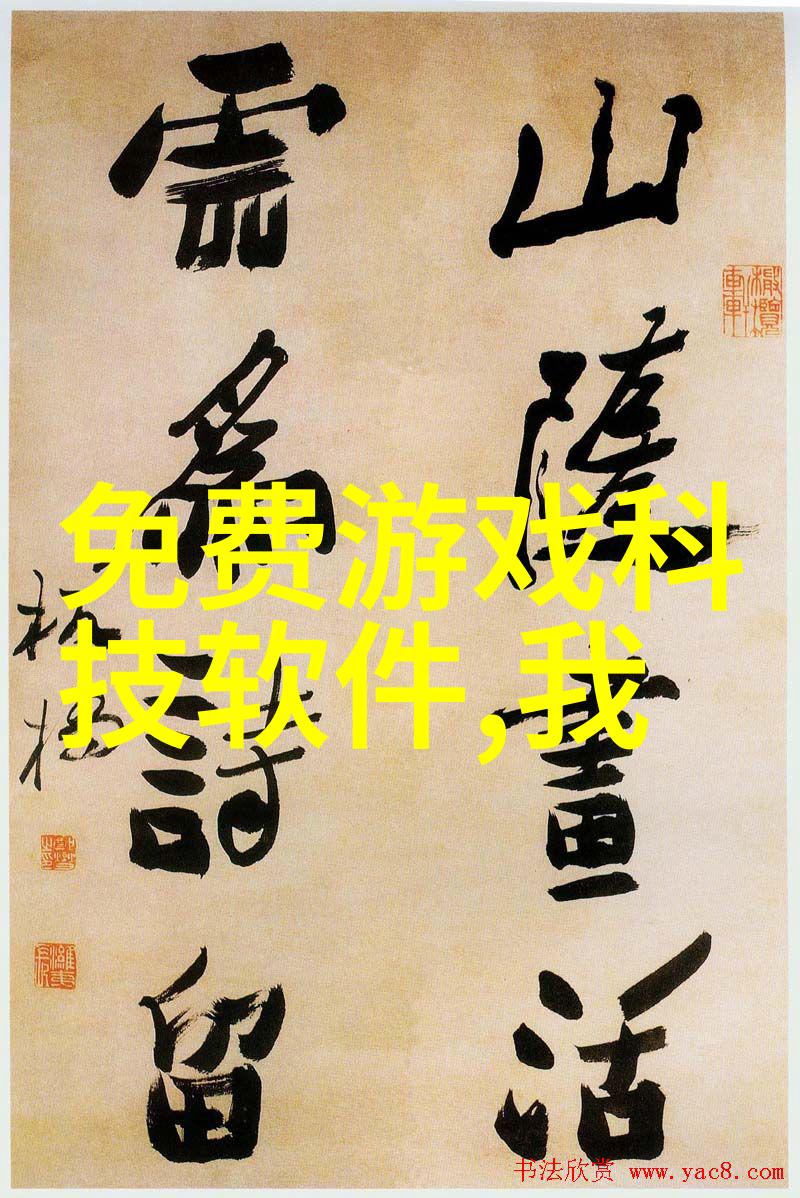 山隨畫活
雲為詩留
板橋
免费游戏科
技软件,我
书法欣赏 www.yac8.com